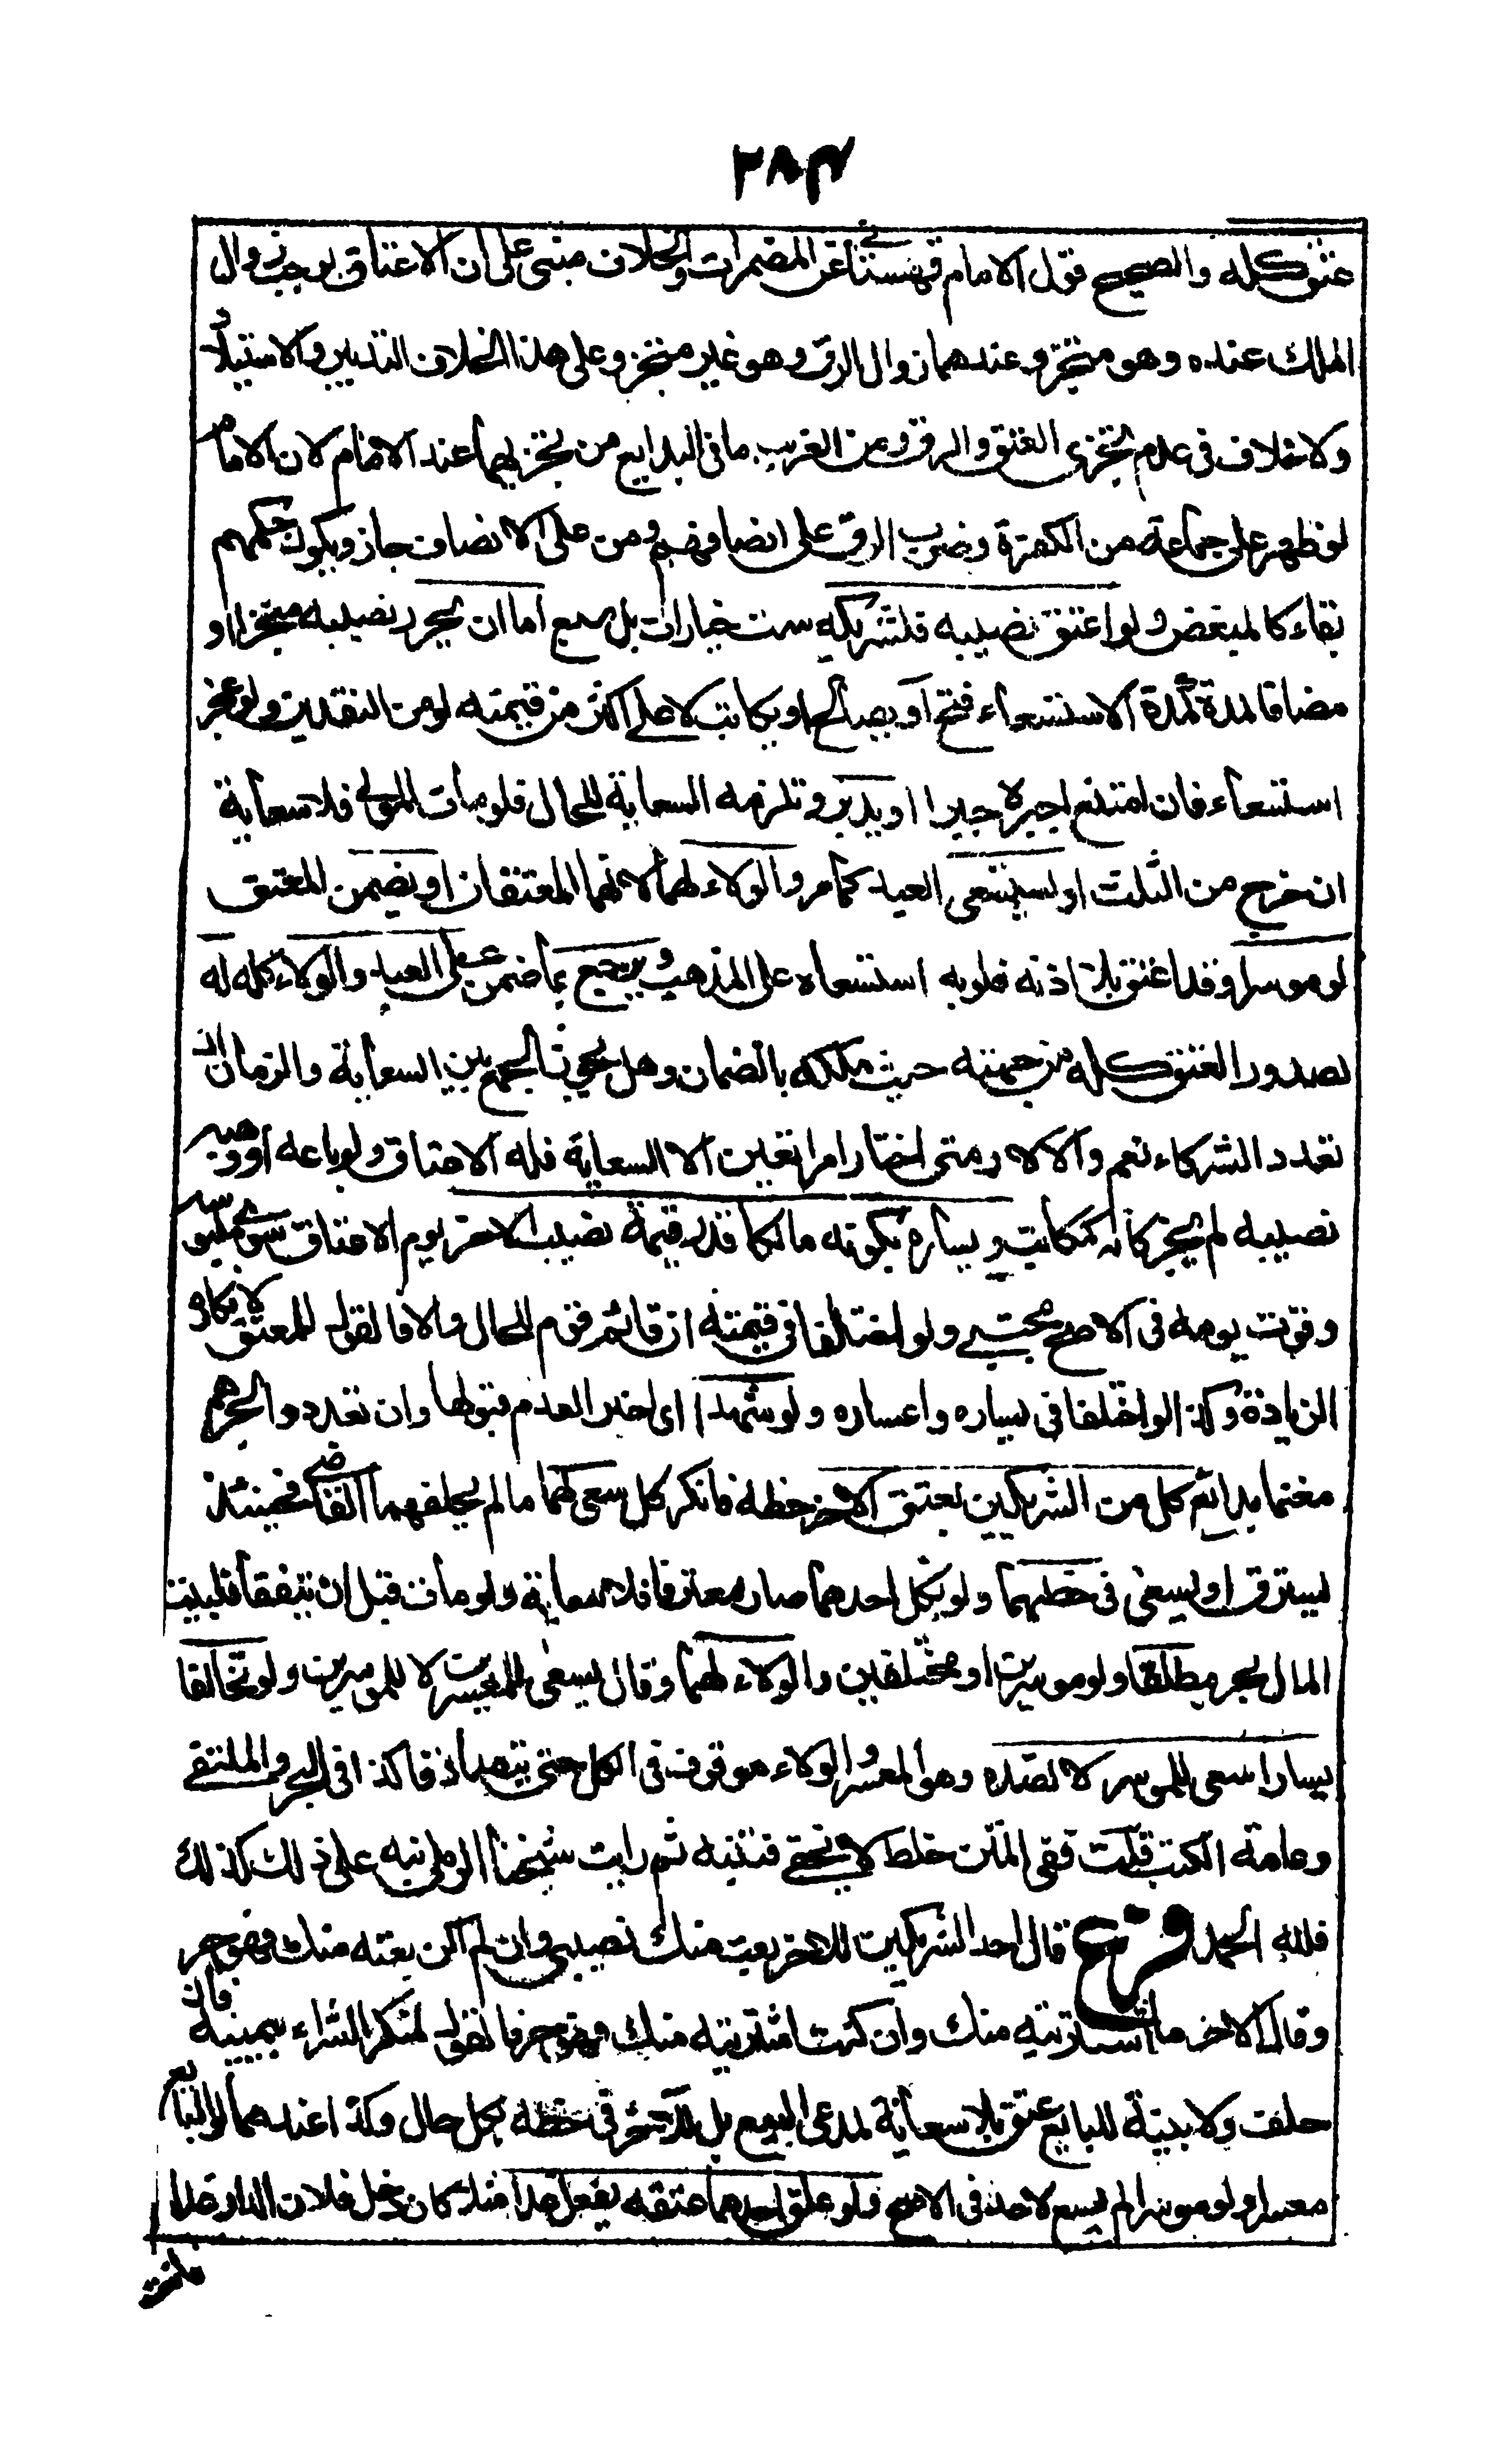 ٢٨٣
عتق كله والصحيح قول الامام قهستاني عن المضمرات والخلاف مبني على ان الاعتاق يوجب زوال
الملك عنده وهو متجز وعندهما زوال الرق وهو غير متجز وعلى هذا الخلاف التدبير والاستيلاد
ولا خلاف في عدم تجزى العتق والرق ومن الغريب ما في البدايع من تجزيهما عند الامام لان الامام
لو ظهر على جماعة من الكفرة وضرب الرق على انصافهم ومن على الانصاف جاز ويكون حكمهم
بقاء كالمبعض ولو اعتق نصيبه فلشريكه ست خيارات بل سبع اما ان يحرر نصيبه منجزا او
مضافا لمدة كمدة الاستسعاء فتح او يصالح او يكاتب لا على اكثر من قيمته لو من النقدين ولو عجز
استسعاء فان امتنع اجره جبرا او يدبر وتلزمه السعاية للحال فلو مات المولى فلا سعاية
ان خرج من الثلث او يستسعى العبد كما مر والولاء لهما لانهما المعتقان او يضمن المعتق
لو موسرا وقد اعتق بلا اذنه فلو به استسعاه على المذهب ويرجع بما ضمن على العبد والولاء كله له
لصدور العتق كله من جهته حيث ملكه بالضمان وهل يجوز الجمع بين السعاية والزمان ان
تعدد الشركاء نعم والا لا ومتى اختار امرا تعين الا السعاية فله الاعتاق ولو باعه او وهبه
نصيبه لم يجز كانه كمكاتب ويساره بكونه مالكا قدر قيمة نصيب الاخر يوم الاعتاق سوى ملبوسه
وقوت يومه في الاصح مجتبى ولو اختلفا في قيمته ان قائم قوم للحال والا فالقول للمعتق لانكاره
الزيادة وكذا لو اختلفا في يساره واعساره ولو شهدا اى اخبر العدم قبولها وان تعددوا لجرهم
مغنما بدائع كل من الشريكين بعتق الاخر حظه فانكر كل سعى لهما ما لم يحلفهما القاضى فحينئذ
يسترق او يسعى في حظهما ولو نكل احدهما صار معترفا فلا سعاية ولو مات قبل ان يتفقا فلبيت
المال بحر مطلقا ولو موسرين او مختلفين والولاء لهما وقالا يسعى للمعسرين لا للموسرين ولو تخالفا
يسارا سعى للموسر لا لضده وهو المعسر والولاء موقوف في الكل حتى يتصادقا كذا في البحر والملتقى
وعامة الكتب قلت ففى المتن خلط لا يخفى فتنبه ثم رايت شيخنا الرملى نبه على ذلك كذلك
فلله الحمد فرع قال احد الشريكين للاخر بعت منك نصيبى وان لم اكن بعته منك فهو حر
وقال الاخر ما اشتريته منك وان كنت اشتريته منك فهو حر فالقول لمنكر الشراء بيمينه فان
حلف ولا بينة للبايع عتق بلا سعاية لمدعى البيع بل للاخر في حظه بكل حال وكذا عندهما لو البايع
معسرا ولو موسرا لم يسع لاحد في الاصح ولو علق احدهما عتقه بفعل غدا مثلا كان دخل فلان الدار غدا